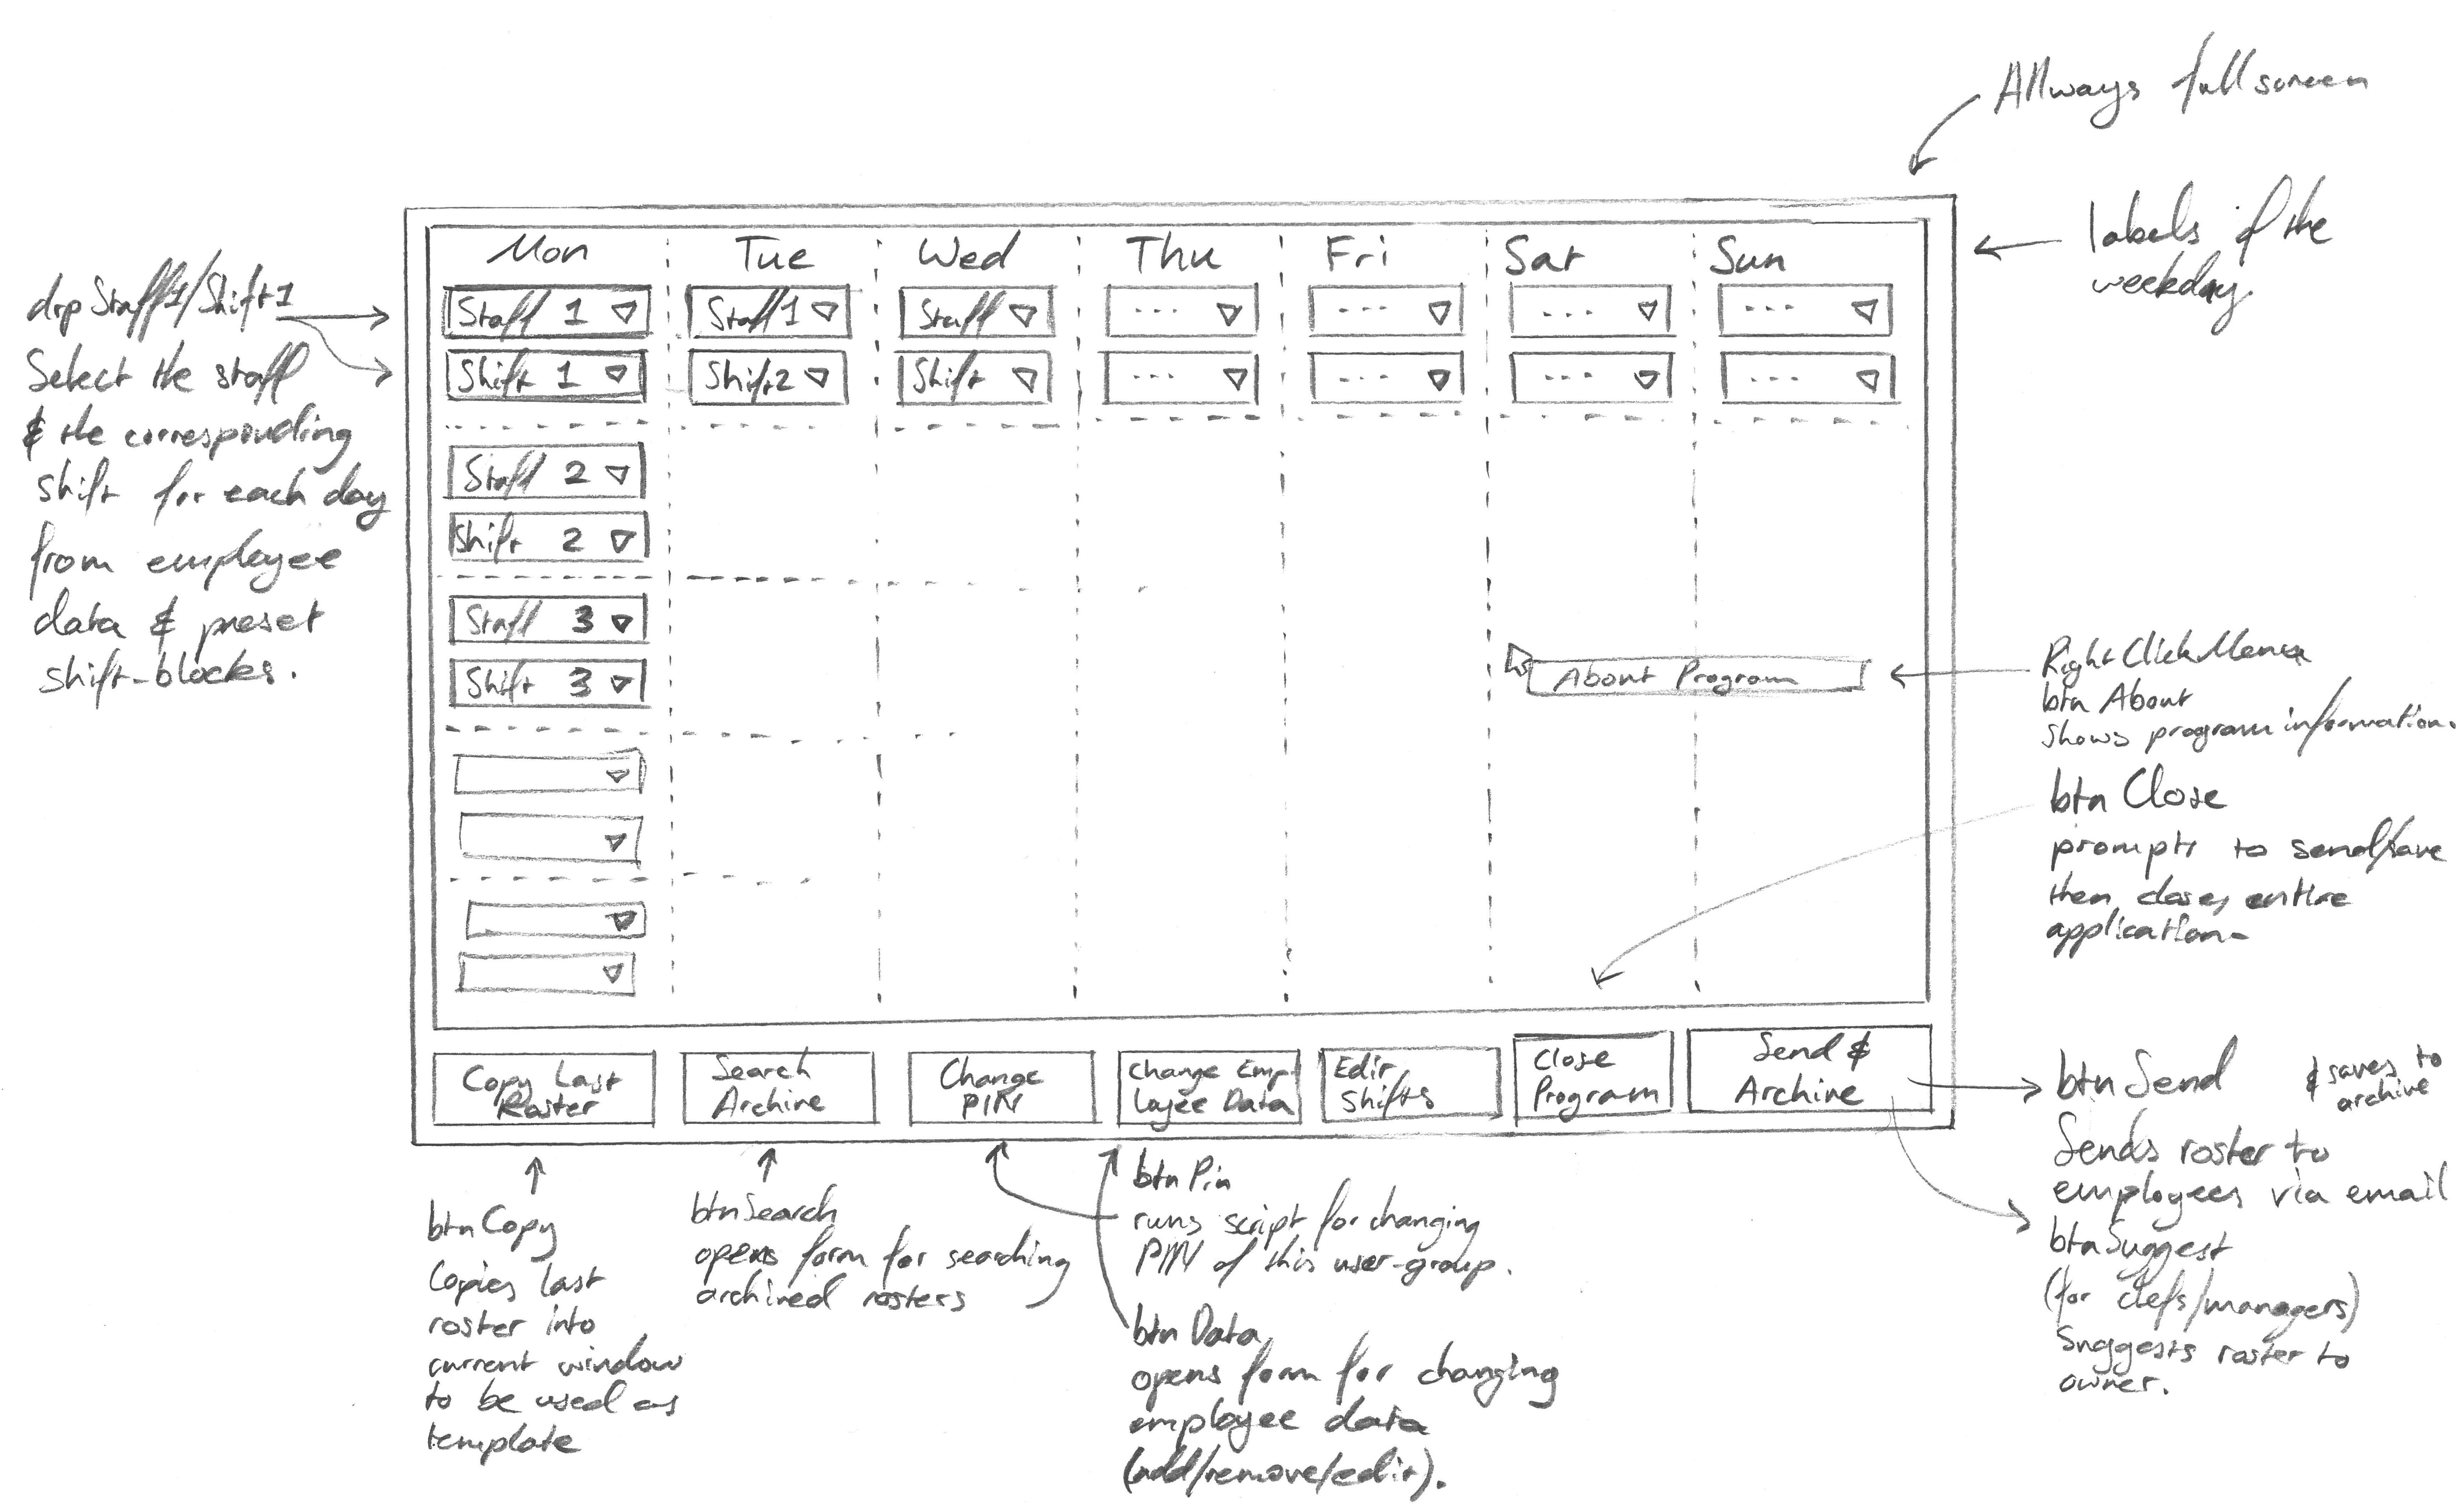 Allways fullscreen
labels of the
weekday.
Mon Tue Wed Thu Fri Sat Sun
drpStaff1/Shift1
Select the staff
& the corresponding
shift for each day
from employee
data & preset
shift-blocks.
Staff 1 Staff1 Staff ... ... ... ...
Shift 1 Shift2 Shift ... ... ... ...
Staff 2
Shift 2
Staff 3
Shift 3
About Program
RightClickMenu
btn About
shows program information.
btn Close
prompts to send/save
then closes entire
application.
Copy Last
Roster
Search
Archive
Change
PIN
Change Emp
loyee Data
Edit
Shifts
Close
Program
Send &
Archive
btnSend & saves to
archive
Sends roster to
employees via email
btnSuggest
(for chefs/managers)
Suggests roster to
owner.
btnCopy
Copies last
roster into
current window
to be used as
template
btnSearch
opens form for searching
archived rosters
btnPin
runs script for changing
PIN of this user-group.
btnData
opens form for changing
employee data
(add/remove/edit).